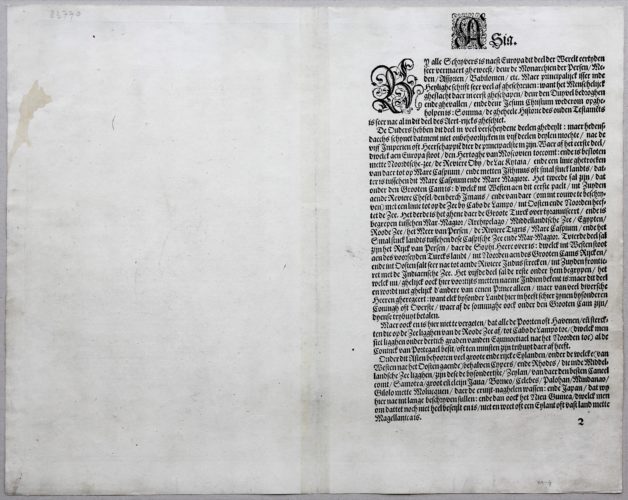 Asia.
BY alle Schrijvers is naest Europa dit deel der Werelt eertyden
seer vermaert gheweest / deur de Monarchien der Persen / Me-
den / Assyrien / Babilonien / etc. Maer principalijck isser inde
Heylighe schrift seer veel af gheschreven: want het Menschelijck
gheslacht daer in eerst gheschapen / deur den Duyvel bedroghen
ende ghevallen / ende deur Jesum Christum wederom opghe-
holpen is: Somma / de gheheele Historie des ouden Testaments
is seer nae al in dit deel des Aert-rijcks gheschiet.
De Ouders hebben dit deel in veel verscheydene deelen ghedeylt: maer hedens-
daechs schynet datment niet onbehoorlijcken in vijf deelen deylen mochte / nae de
vijf Imperien oft Heerschappije die de principaelste in zijn. Waer af het eerste deel /
dwelck aen Europa stoot / den Hertoghe van Moscovien toecomt: ende is besloten
mette Noordtsche-zee / de Reviere Oby / de Lac Kytaia / ende een linie ghetrocken
van daer tot op Mare Caspium / ende metten Isthmus oft smal stuck landts / dat-
ter is tusschen dit Mare Caspium ende Mare Maiore. Het tweede sal zijn / dat
onder den Grooten Cam is: d'welck int Westen aen dit eerste paelt / int Zuyden
aende Reviere Chesel, den berch Imaus / ende van daer
met een linie tot op de Zee by Cabo de Lampo / int Oosten ende Noorden heef-
tet de Zee. Het derde is het ghene daer de Groote Turck over tyranniseert / ende is
begrepen tusschen Mar-Magior / Archipelago / Middellandtsche Zee / Egypten /
Roode Zee / het Meer van Persen / de Reviere Tigris / Mare Caspium / ende het
Smal stuck landts tusschen dese Caspische Zee ende Mar-Magior. Tvierde deel sal
zijn het Rijck van Persen / daer de Sophi Heer over is: dwelck int Westen stoot
aen des voorseyden Turcks landt / int Noorden aen des Grooten Cams Rijcken /
ende int Oosten salt seer nae tot aende Riviere Indus strecken / int Zuyden frontie-
ret met de Indiaensche Zee. Het vijfde deel sal de reste onder hem begrypen / het
welck nu / ghelijck oock hier voortijts metten naeme Indien bekent is: maer dit deel
en wordt niet ghelijck d'andere van eenen Prince alleen / maer van veel diversche
Heeren gheregeert: want elck bysonder Landt hier in heeft schier zijnen bysonderen
Coningh oft Overste / waer af de sommighe oock onder den Grooten Cam zijn /
dyense trybuyt betalen.
Maer oock en is hier niet te vergeten / dat alle de Poorten oft Havenen /
ten die op de Zee ligghen van de Roode Zee af / tot Cabo de Lampo toe / (dwelck men
siet ligghen onder dertich graden vanden Equinoctiael nae het Noorden toe) al de
Coninck van Portegael besit / oft ten minsten zijn tribuyt daer af heeft.
Onder dit Asien behooren veel groote ende rijcke Eylanden / onder de welcke (van
Westen nae het Oosten gaende / behalven Cypers / ende Rhodes / die inde Middel-
landtsche Zee ligghen / zijn dese de bysonderste / Zeylan / van daer den besten Caneel
comt / Samotra / groot en cleijn Java / Borneo / Celebes / Palohan / Mindanao /
Gilolo mette Molucquen / daer de cruyt-naghelen wassen: ende Japan / dat wy
hier nae int lange beschryven sullen: ende dan oock het Nieu Guinea / dwelck men
om dattet noch niet heel beseylt en is / niet en weet oft een Eylant oft vast land mette
Magellanica is.
2